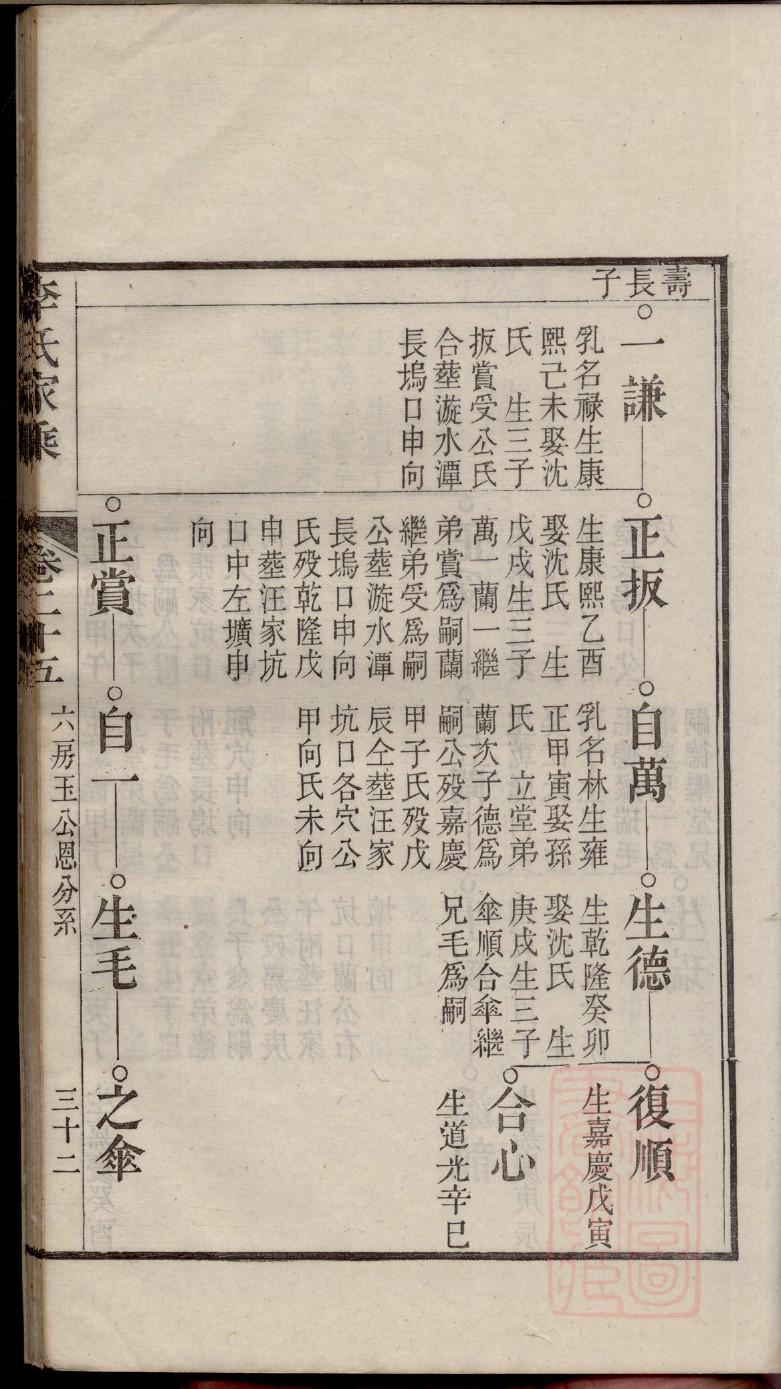 壽長子
一謙
乳名禄生康
熙己未娶沈
氏 生三子
扳賞受公氏
合塟漩水潭
長塢口申向
正扳
生康熙乙酉
娶沈氏 生
戊戌生三子
萬一蘭一繼
弟賞爲嗣蘭
繼弟受爲嗣
公塟漩水潭
長塢口申向
氏殁乾隆戊
申塟汪家坑
口中左壙申
向
自萬
乳名林生雍
正甲寅娶孫
氏 立堂弟
蘭次子德爲
嗣公殁嘉慶
甲子氏殁戊
辰仝塟汪家
坑口各穴公
甲向氏未向
生德
生乾隆癸卯
娶沈氏 生
庚戌生三子
傘順合傘繼
兄毛爲嗣
復順
生嘉慶戊寅
合心
生道光辛巳
正賞
自一
生毛
之傘
李氏家乘 卷二十五 六房玉公恩分系 三十二